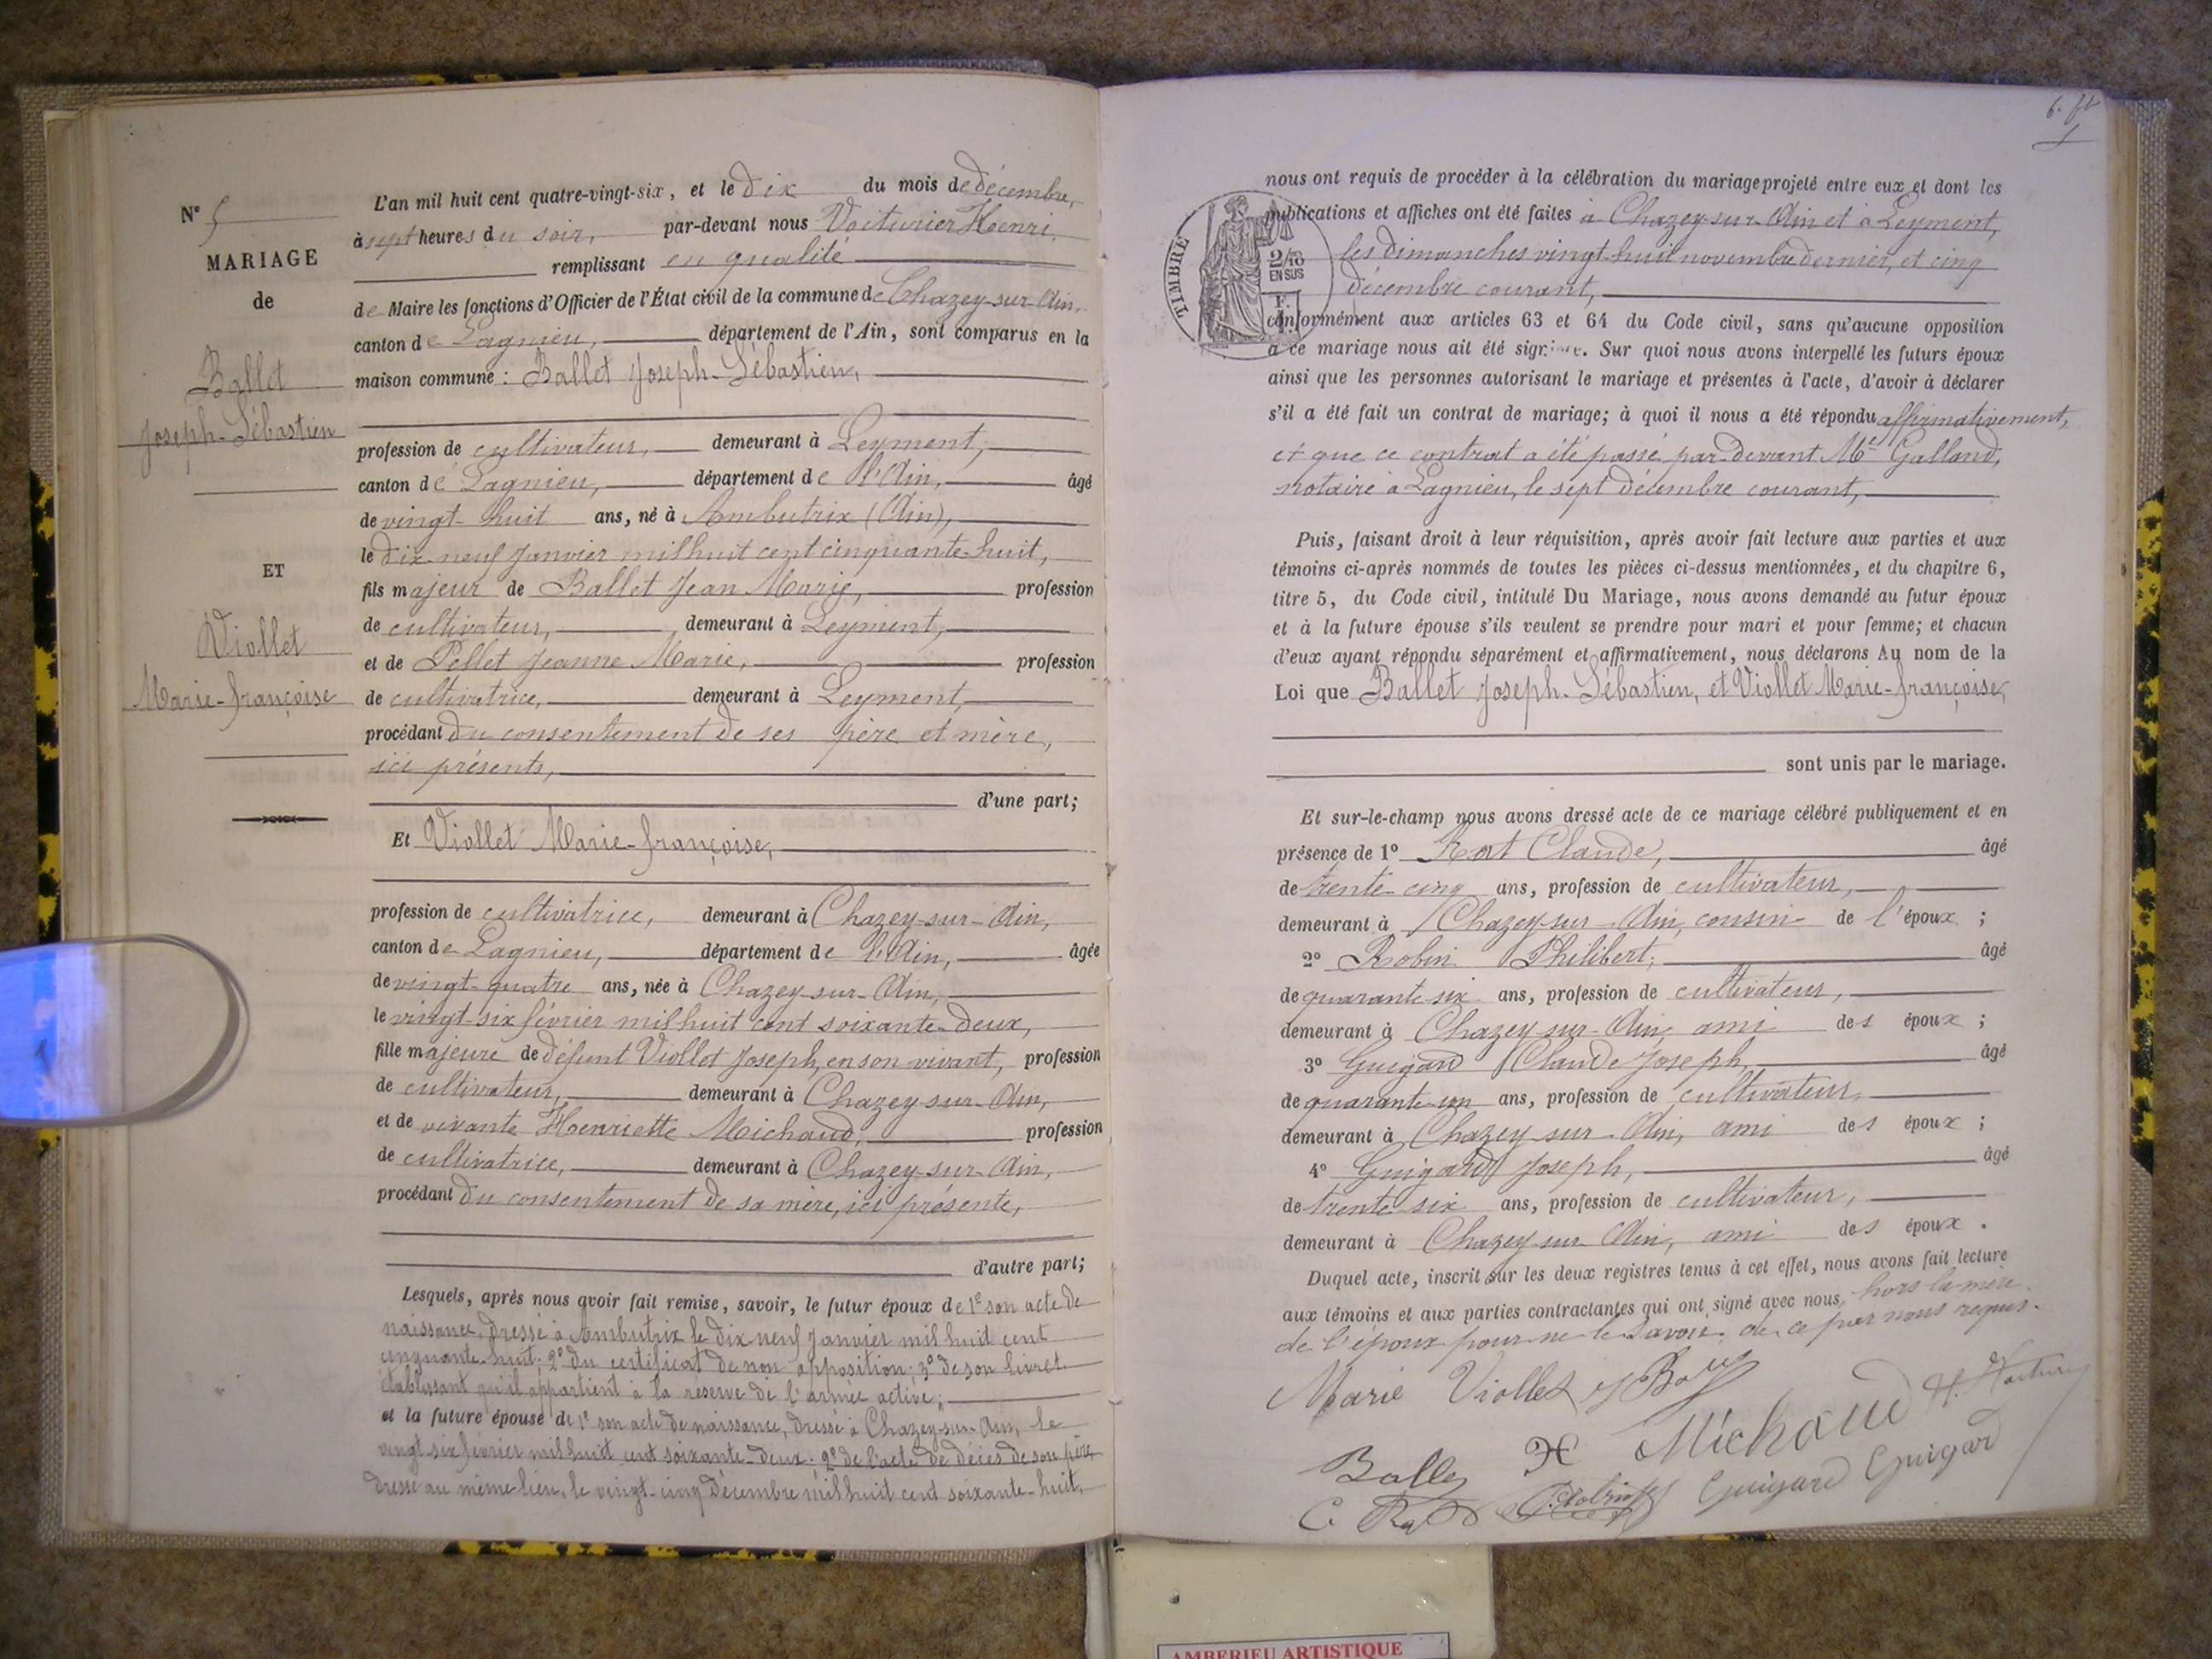 N° 5
MARIAGE
de
Ballet
Joseph-Sébastien
ET
Viollet
Marie-françoise
L'an mil huit cent quatre-vingt-six, et le dix du mois de décembre,
à sept heures du soir, par-devant nous Voiturier Henri,
remplissant en qualité
de Maire les fonctions d'Officier de l'État civil de la commune de Chazey-sur-Ain,
canton de Lagnieu, département de l'Ain, sont comparus en la
maison commune : Ballet Joseph-Sébastien,
profession de cultivateur, demeurant à Leyment,
canton de Lagnieu, département de l'Ain, âgé
de vingt-huit ans, né à Ambutrix (Ain),
le dix-neuf Janvier mil huit cent cinquante-huit,
fils majeur de Ballet Jean Marie, profession
de cultivateur, demeurant à Leyment,
et de Pellet Jeanne Marie, profession
de cultivatrice, demeurant à Leyment,
procédant du consentement de ses père et mère,
ici présents,
d'une part;
Et Viollet Marie-françoise,
profession de cultivatrice, demeurant à Chazey-sur-Ain,
canton de Lagnieu, département de l'Ain, âgée
de vingt-quatre ans, née à Chazey-sur-Ain,
le vingt-six février mil huit cent soixante-deux,
fille majeure de défunt Viollet Joseph, en son vivant, profession
de cultivateur, demeurant à Chazey-sur-Ain,
et de vivante Henriette Michaud, profession
de cultivatrice, demeurant à Chazey-sur-Ain,
procédant du consentement de sa mère, ici présente,
d'autre part;
Lesquels, après nous avoir fait remise, savoir, le futur époux de 1° son acte de
naissance, dressé à Ambutrix le dix neuf Janvier mil huit cent
cinquante-huit; 2° du certificat de non opposition; 3° de son livret
établissant qu'il appartient à la réserve de l'armée active;
et la future épouse de 1° son acte de naissance, dressé à Chazey-sur-Ain, le
vingt-six février mil huit cent soixante-deux; 2° de l'acte de décès de son père
dressé au même lieu, le vingt-cinq décembre mil huit cent soixante-huit,
6. ft
TIMBRE
2/10
EN SUS
nous ont requis de procéder à la célébration du mariage projeté entre eux et dont les
publications et affiches ont été faites à Chazey-sur-Ain et à Leyment,
les dimanches vingt-huit novembre dernier, et cinq
décembre courant,
conformément aux articles 63 et 64 du Code civil, sans qu'aucune opposition
à ce mariage nous ait été signifiée. Sur quoi nous avons interpellé les futurs époux
ainsi que les personnes autorisant le mariage et présentes à l'acte, d'avoir à déclarer
s'il a été fait un contrat de mariage; à quoi il nous a été répondu affirmativement,
et que ce contrat a été passé par-devant Me Galland,
notaire à Lagnieu, le sept décembre courant,
Puis, faisant droit à leur réquisition, après avoir fait lecture aux parties et aux
témoins ci-après nommés de toutes les pièces ci-dessus mentionnées, et du chapitre 6,
titre 5, du Code civil, intitulé Du Mariage, nous avons demandé au futur époux
et à la future épouse s'ils veulent se prendre pour mari et pour femme; et chacun
d'eux ayant répondu séparément et affirmativement, nous déclarons Au nom de la
Loi que Ballet Joseph-Sébastien, et Viollet Marie-françoise,
sont unis par le mariage.
Et sur-le-champ nous avons dressé acte de ce mariage célébré publiquement et en
présence de 1° Rat Claude, âgé
de trente-cinq ans, profession de cultivateur,
demeurant à Chazey-sur-Ain, cousin de l'époux ;
2° Robin Philibert, âgé
de quarante six ans, profession de cultivateur,
demeurant à Chazey-sur-Ain, ami des époux ;
3° Guigard Claude Joseph, âgé
de quarante-un ans, profession de cultivateur,
demeurant à Chazey-sur-Ain, ami des époux ;
4° Guigard Joseph, âgé
de trente six ans, profession de cultivateur,
demeurant à Chazey-sur-Ain, ami des époux .
Duquel acte, inscrit sur les deux registres tenus à cet effet, nous avons fait lecture
aux témoins et aux parties contractantes qui ont signé avec nous, hors la mère
de l'époux pour ne le savoir, de ce par nous requis.
Marie Viollet
Michaud
Guigard Guigard
AMBERIEU ARTISTIQUE